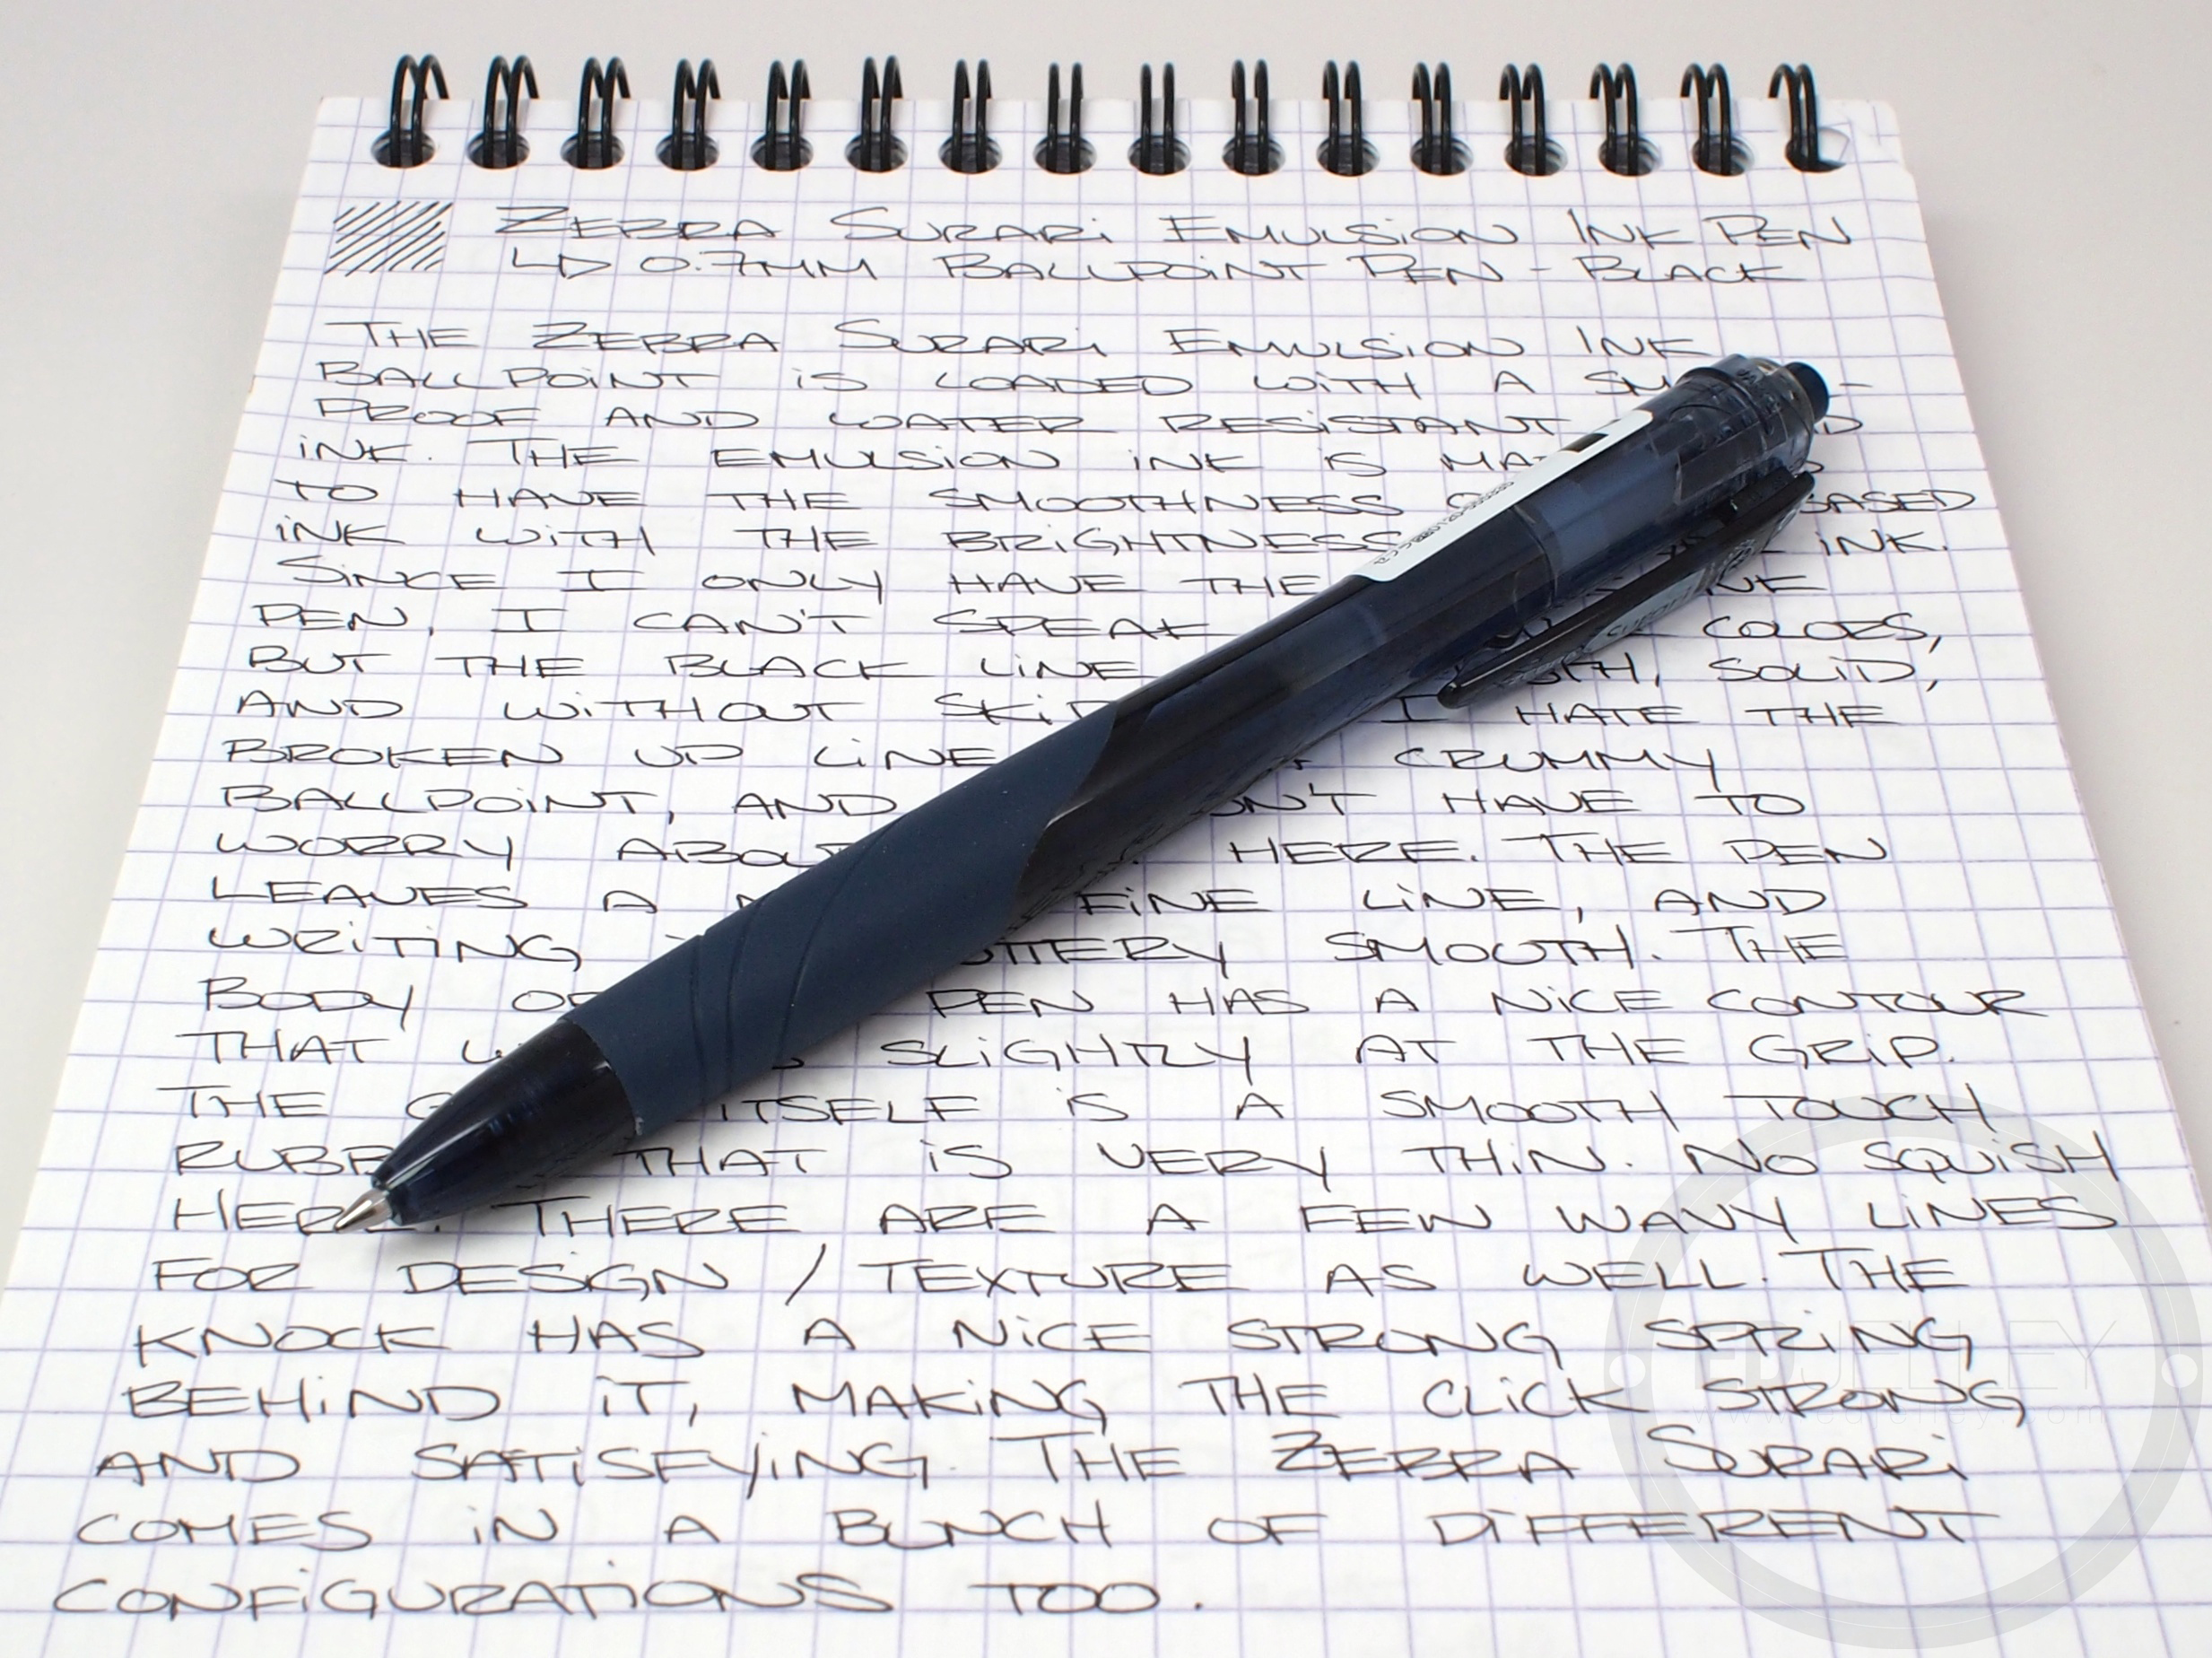 ZEBRA SURARI EMULSION INK PEN
↳ 0.7MM BALLPOINT PEN - BLACK
THE ZEBRA SURARI EMULSION INK
BALLPOINT IS LOADED WITH A
PROOF AND WATER RESISTANT
INK. THE EMULSION INK IS
TO HAVE THE SMOOTHNESS BASED
INK WITH THE BRIGHTNESS INK.
SINCE I ONLY HAVE THE
PEN, I CAN'T SPEAK COLORS,
BUT THE BLACK LINE SOLID,
AND WITHOUT I HATE THE
BROKEN UP LINE CRUMMY
BALLPOINT, AND HAVE TO
WORRY HERE. THE PEN
LEAVES A FINE LINE, AND
WRITING SMOOTH. THE
BODY PEN HAS A NICE CONTOUR
THAT SLIGHTLY AT THE GRIP.
THE ITSELF IS A SMOOTH TOUCH
THAT IS VERY THIN. NO SQUISH
HERE. THERE ARE A FEW WAVY LINES
FOR DESIGN / TEXTURE AS WELL. THE
KNOCK HAS A NICE STRONG SPRING
BEHIND IT, MAKING THE CLICK STRONG
AND SATISFYING. THE ZEBRA SURARI
COMES IN A BUNCH OF DIFFERENT
CONFIGURATIONS TOO.
EDJELLEY
www.edjelley.com